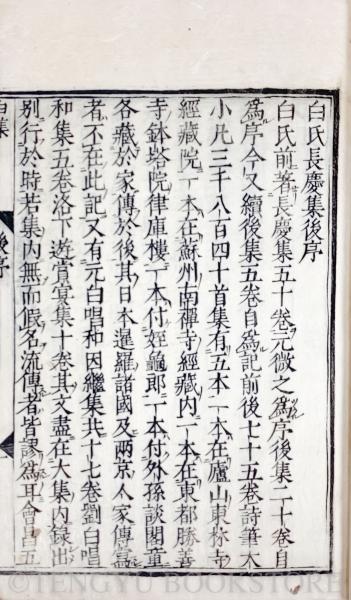 白氏長慶集後序
白氏前著長慶集五十卷元微之爲序後集二十卷自
爲序今又續後集五卷自爲記前後七十五卷詩筆大
小凡三千八百四十首集有五本一本在廬山東林寺
經藏院一本在蘇州南禪寺經藏內一本在東都勝善
寺鉢塔院律庫樓一本付姪龜郎一本付外孫談閣童
各藏於家傳於後其日本暹羅諸國及兩京人家傳寫
者不在此記又有元白唱和因繼集共十七卷劉白唱
和集五卷洛下遊賞宴集十卷其文盡在大集內錄出
別行於時若集內無而假名流傳者皆謬爲耳會昌五
白集
後序
©TENGYU BOOKSTORE